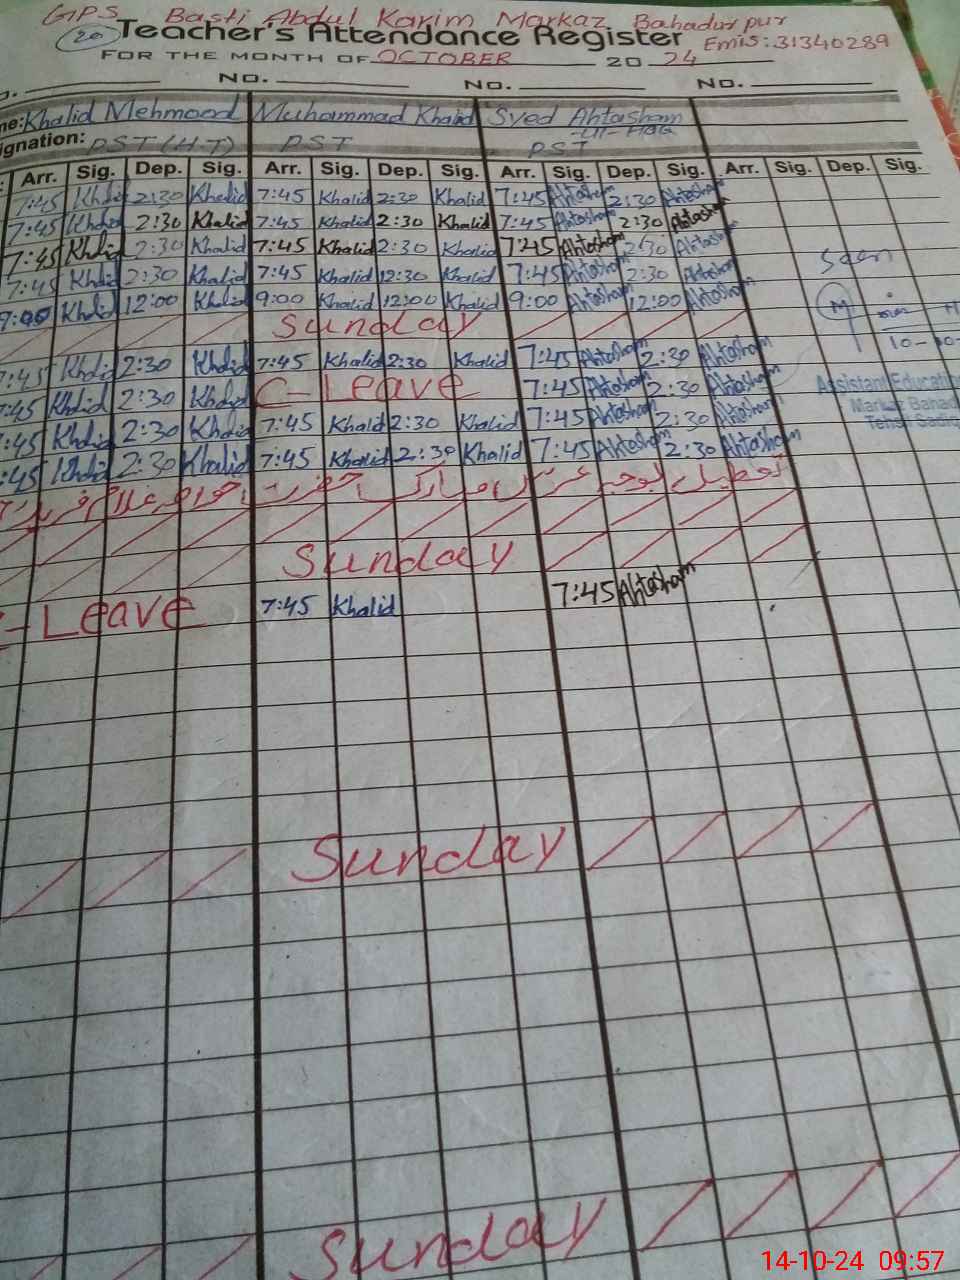 GPS Basti Abdul Karim Markaz Bahadur pur
20 Teacher's Attendance Register Emis: 31340289
FOR THE MONTH OF OCTOBER 20 24
NO. NO. NO.
me: Khalid Mehmood Muhammad Khalid Syed Ahtasham
-ul-Haq
ignation: PST (H.T) PST PST
Arr. Sig. Dep. Sig. Arr. Sig. Dep. Sig. Arr. Sig. Dep. Sig. Arr. Sig. Dep. Sig.
7:45 Khalid 2:30 Khalid 7:45 Khalid 2:30 Khalid 7:45 Ahtasham 2:30 Ahtasham
7:45 Khalid 2:30 Khalid 7:45 Khalid 2:30 Khalid 7:45 Ahtasham 2:30 Ahtasham
7:45 Khalid 2:30 Khalid 7:45 Khalid 2:30 Khalid 7:45 Ahtasham 2:30 Ahtasham
7:45 Khalid 2:30 Khalid 7:45 Khalid 12:30 Khalid 7:45 Ahtasham 2:30 Ahtasham
9:00 Khalid 12:00 Khalid 9:00 Khalid 12:00 Khalid 9:00 Ahtasham 12:00 Ahtasham
Seen
Sunday
7:45 Khalid 2:30 Khalid 7:45 Khalid 2:30 Khalid 7:45 Ahtasham 2:30 Ahtasham
7:45 Khalid 2:30 Khalid C-Leave 7:45 Ahtasham 2:30 Ahtasham
:45 Khalid 2:30 Khalid 7:45 Khalid 2:30 Khalid 7:45 Ahtasham 2:30 Ahtasham
:45 Khalid 2:30 Khalid 7:45 Khalid 2:30 Khalid 7:45 Ahtasham 2:30 Ahtasham
Assistant Educatio
Markaz Bahad
تعطیل بوجہ عرس مبارک حضرت خواجہ غلام فرید
Sunday
-Leave 7:45 Khalid 7:45 Ahtasham
Sunday
Sunday
14-10-24 09:57